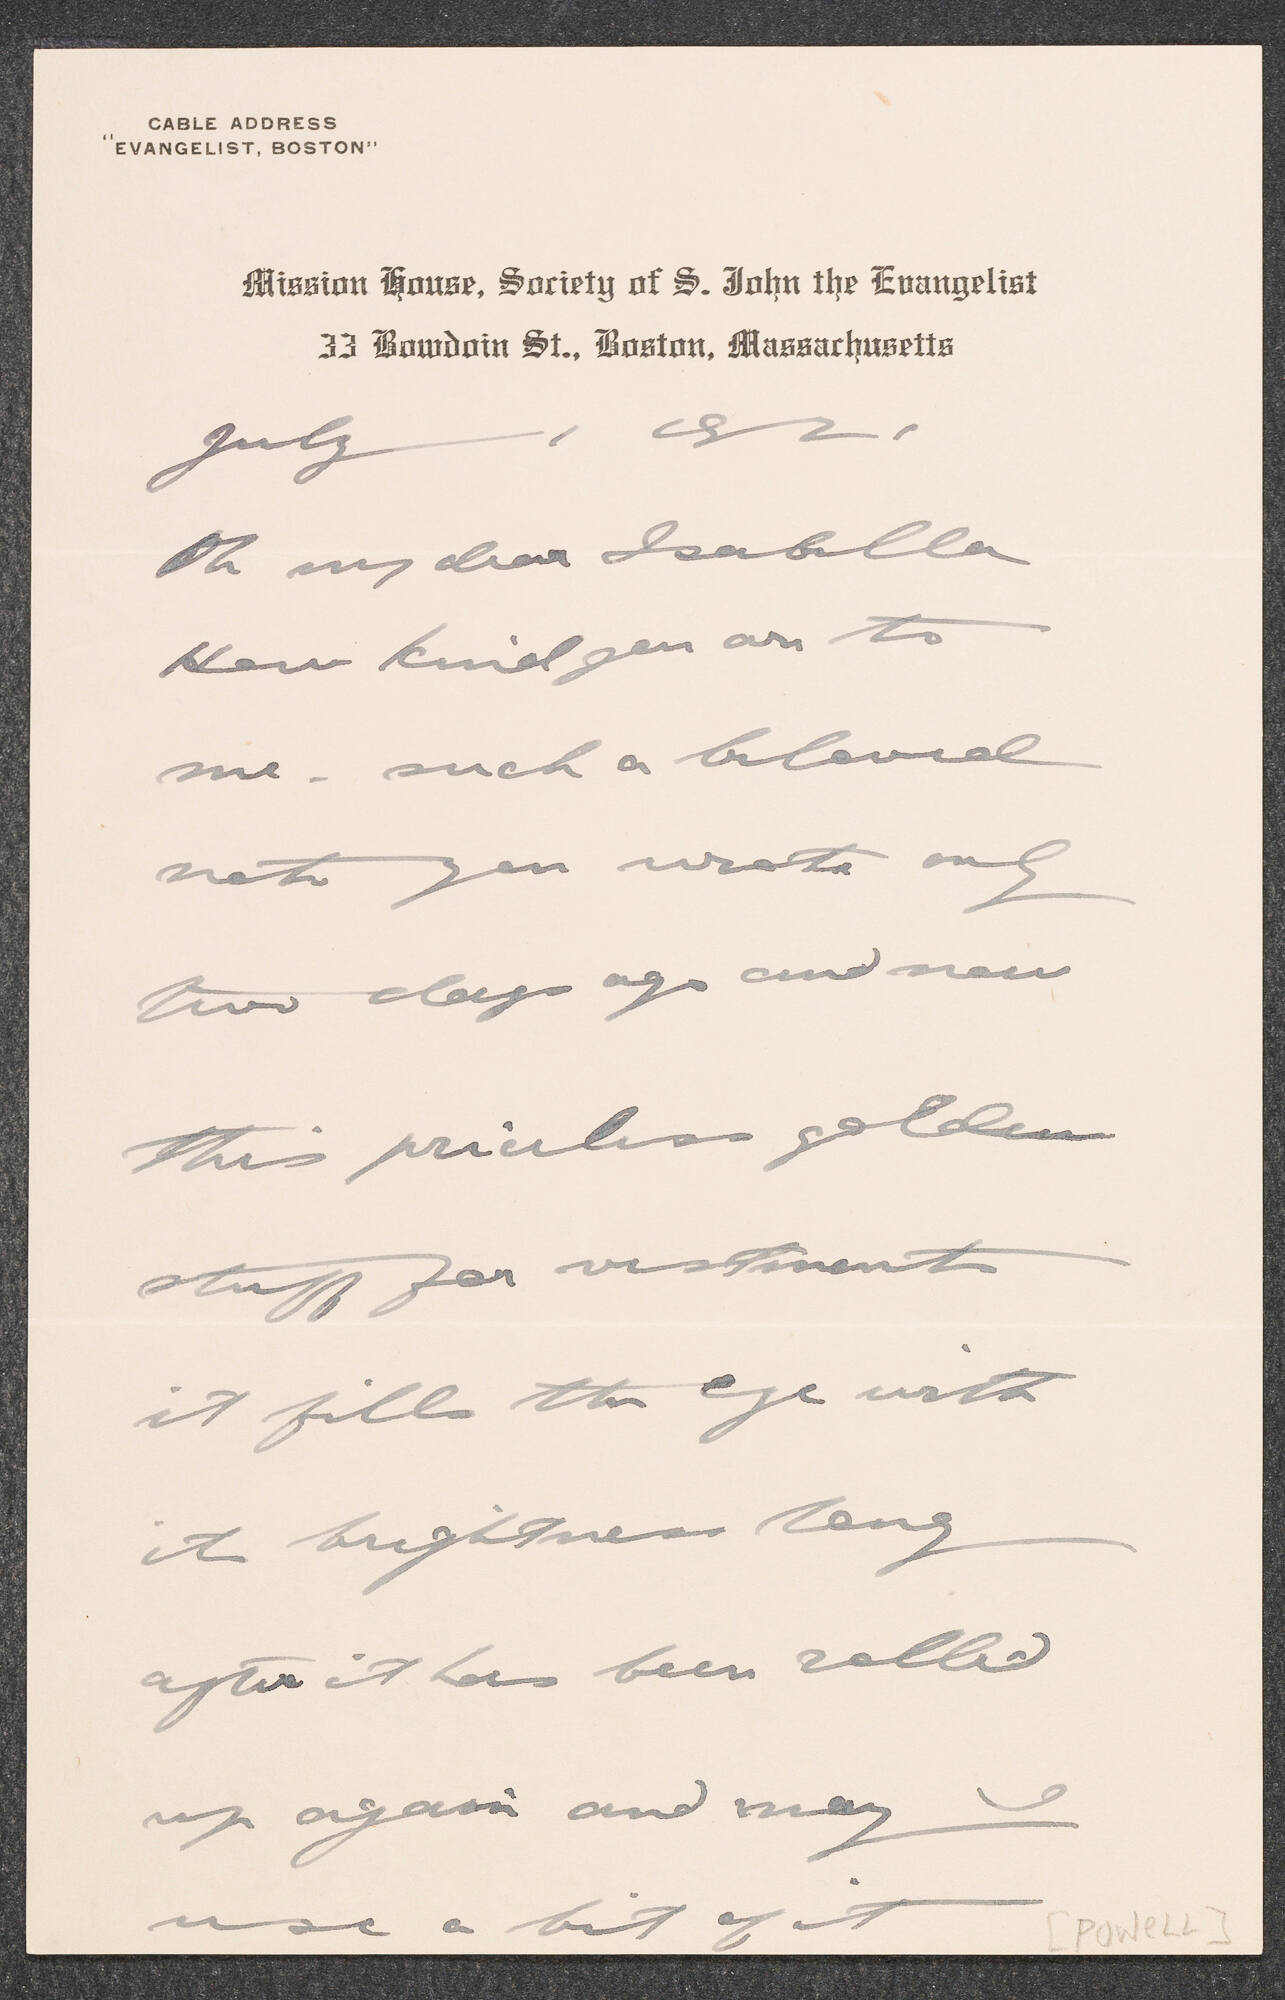 CABLE ADDRESS
"EVANGELIST, BOSTON"
Mission House, Society of S. John the Evangelist
33 Bowdoin St., Boston, Massachusetts
July
Oh my dear Isabella
How kind you are to
me - such a beloved
note you wrote only
two days ago and now
this priceless golden
stuff for vestments
it fills the eye with
its brightness long
after it has been rolled
up again and may I
use a bit of it
[POWELL]